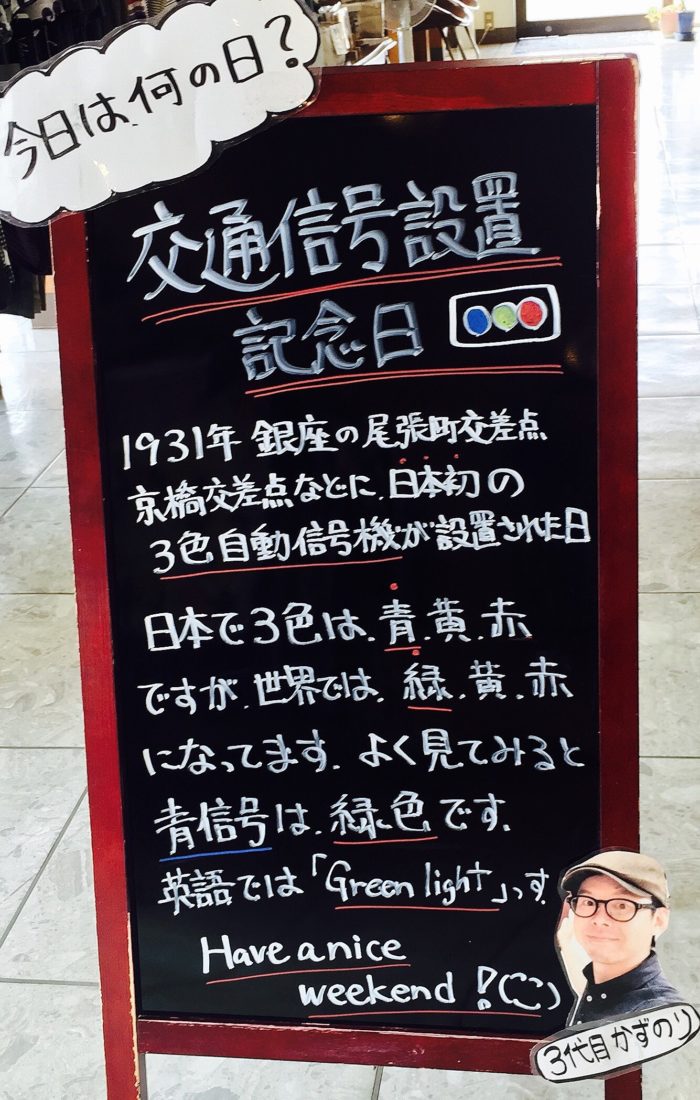 今日は、何の日?
交通信号設置
記念日
1931年 銀座の尾張町交差点
京橋交差点などに、日本初の
3色自動信号機が設置された日
日本で3色は、青、黄、赤
ですが、世界では、緑、黄、赤
になってます。よく見てみると
青信号は、緑色です。
英語では「Green light」っす
Have a nice
weekend!
3代目かずのり